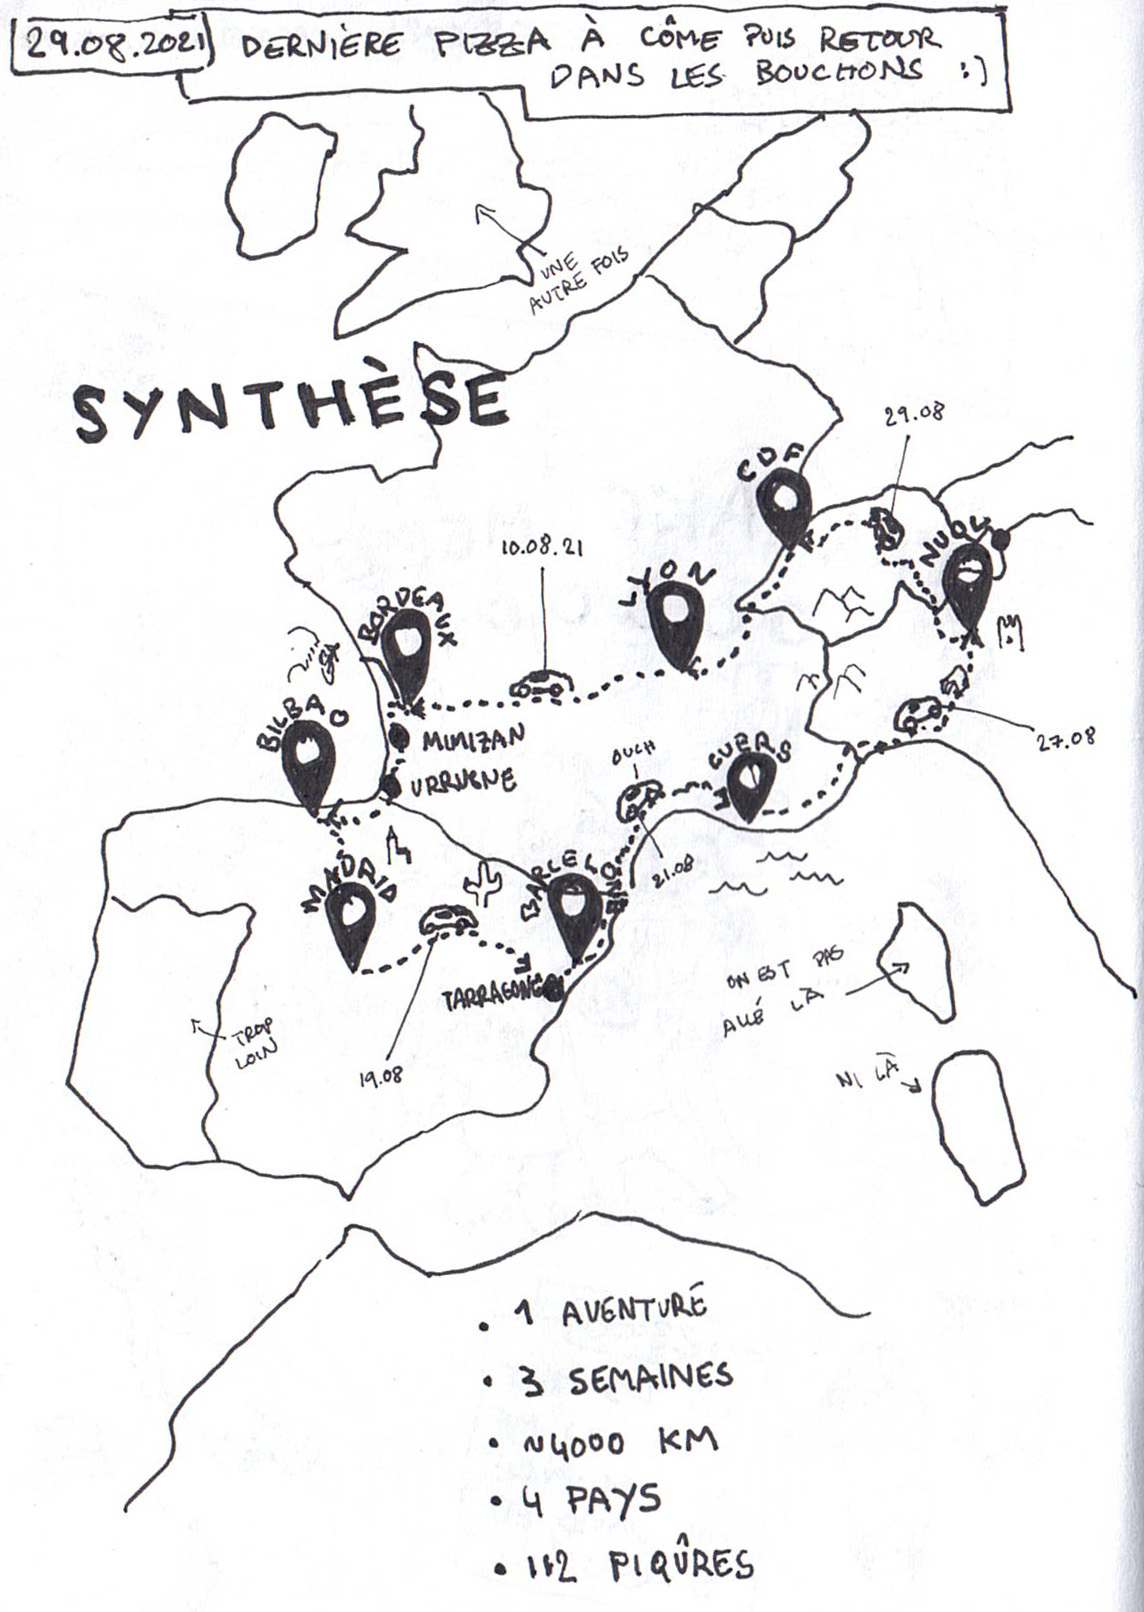 29.08.2021
DERNIÈRE PIZZA À CÔME PUIS RETOUR
DANS LES BOUCHONS :)
UNE
AUTRE FOIS
SYNTHÈSE
29.08
CDF
10.08.21
LYON
BORDEAUX
BILBAO
MIMIZAN
URRUGNE
OUCH
CUERS
27.08
21.08
MADRID
BARCELONE
TARRAGONE
ON EST PAS
ALLÉ LÀ
TROP
LOIN
19.08
NI LÀ
. 1 AVENTURE
• 3 SEMAINES
• ~4000 KM
• 4 PAYS
• 112 PIQÛRES